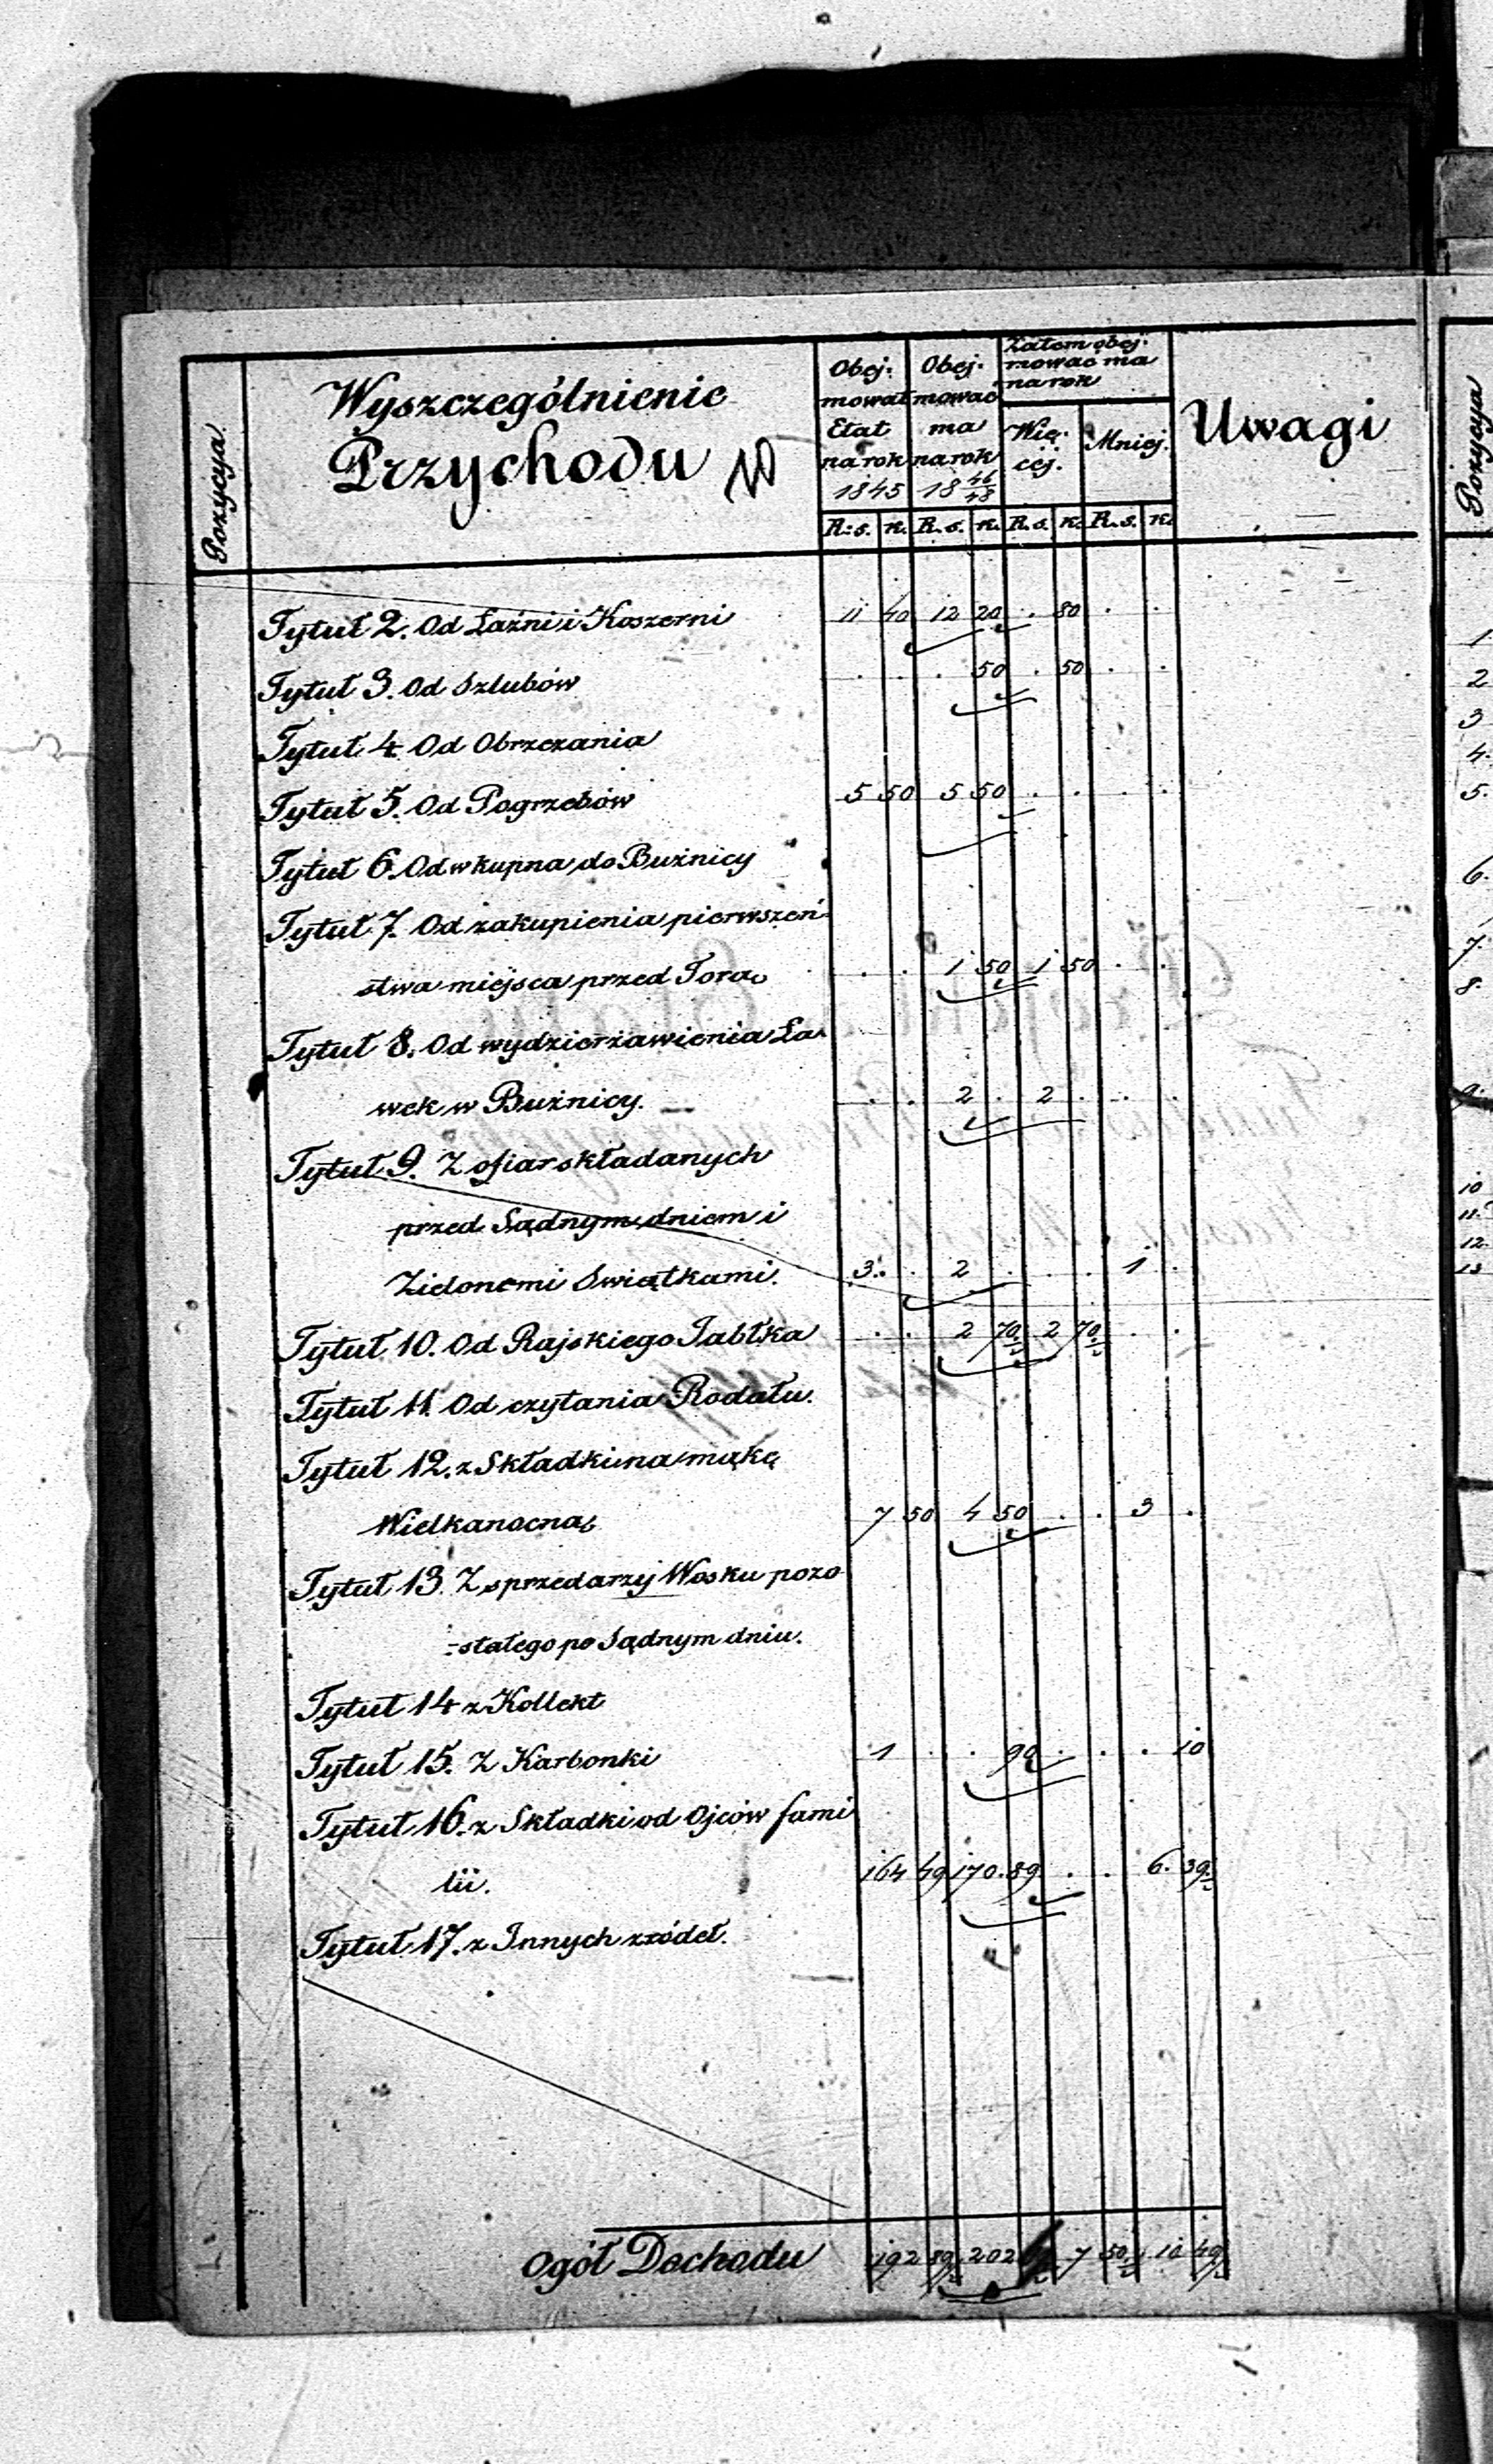 Pozycya
Wyszczególnienie
Przychodu
Obej:
mował
Etat
na rok
1845
Obej:
mować
ma
na rok
18 46/48
Zatem obej:
mować ma
na rok
Wię:
céj.
Mniej.
Uwagi
R: s. k. R. s. k. R. s. k. R. s. k.
Tytuł 2. Od Łaźni i Koszerni 11 40 12 20 . 80 . .
Tytuł 3. Od Szlubów . . . 50 . 50 . .
Tytuł 4. Od Obrzezania
Tytuł 5. Od Pogrzebów 5 50 5 50 . . . .
Tytuł 6. Od wkupna do Buźnicy
Tytuł 7. Od zakupienia pierwszeń-
stwa miejsca przed Torą . . 1 50 1 50 . .
Tytuł 8. Od wydzierżawienia Ła-
wek w Buźnicy. . . 2 . 2 . . .
Tytuł 9. Z ofiar składanych
przed Sądnym dniem i
Zielonemi Swiątkami. 3. . 2 . . . 1 .
Tytuł 10. Od Rajskiego Jabłka . . 2 70 2 70 . .
Tytuł 11. Od czytania Rodału.
Tytuł 12. z Składki na mąkę
Wielkanocną 7 50 4 50 . . 3 .
Tytuł 13. Z sprzedarzy Wosku pozo
-stałego po Sądnym dniu.
Tytuł 14 z Kollekt
Tytuł 15. Z Karbonki 1 . . 90 . . . 10
Tytuł 16. z Składki od Ojców fami
lii. 164 49 170. 89 . . 6. 39
Tytuł 17. z Innych zródeł.
Ogół Dochodu 192 89 202 7 50 10 49
Pozycya
1.
2
3
4.
5.
6.
7.
8.
9.
10
11.
12.
13